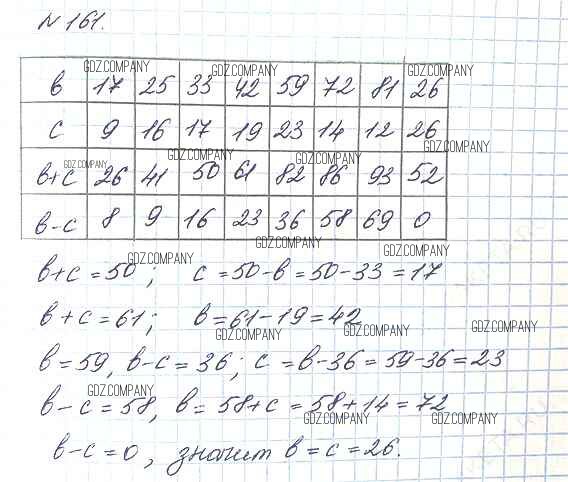 N 161.
GDZ.COMPANY GDZ.COMPANY GDZ.COMPANY
в 17 25 33 42 59 72 81 26
с 9 16 17 19 23 14 12 26
GDZ.COMPANY GDZ.COMPANY GDZ.COMPANY GDZ.COMPANY
в+с 26 41 50 61 82 86 93 52
в-с 8 9 16 23 36 58 69 0
GDZ.COMPANY GDZ.COMPANY GDZ.COMPANY
в+с=50; с=50-в=50-33=17
в+с=61; в=61-19=42
GDZ.COMPANY GDZ.COMPANY GDZ.COMPANY
в=59, в-с=36; с=в-36=59-36=23
GDZ.COMPANY
в-с=58, в=58+с=58+14=72
GDZ.COMPANY GDZ.COMPANY
в-с=0, значит в=с=26.